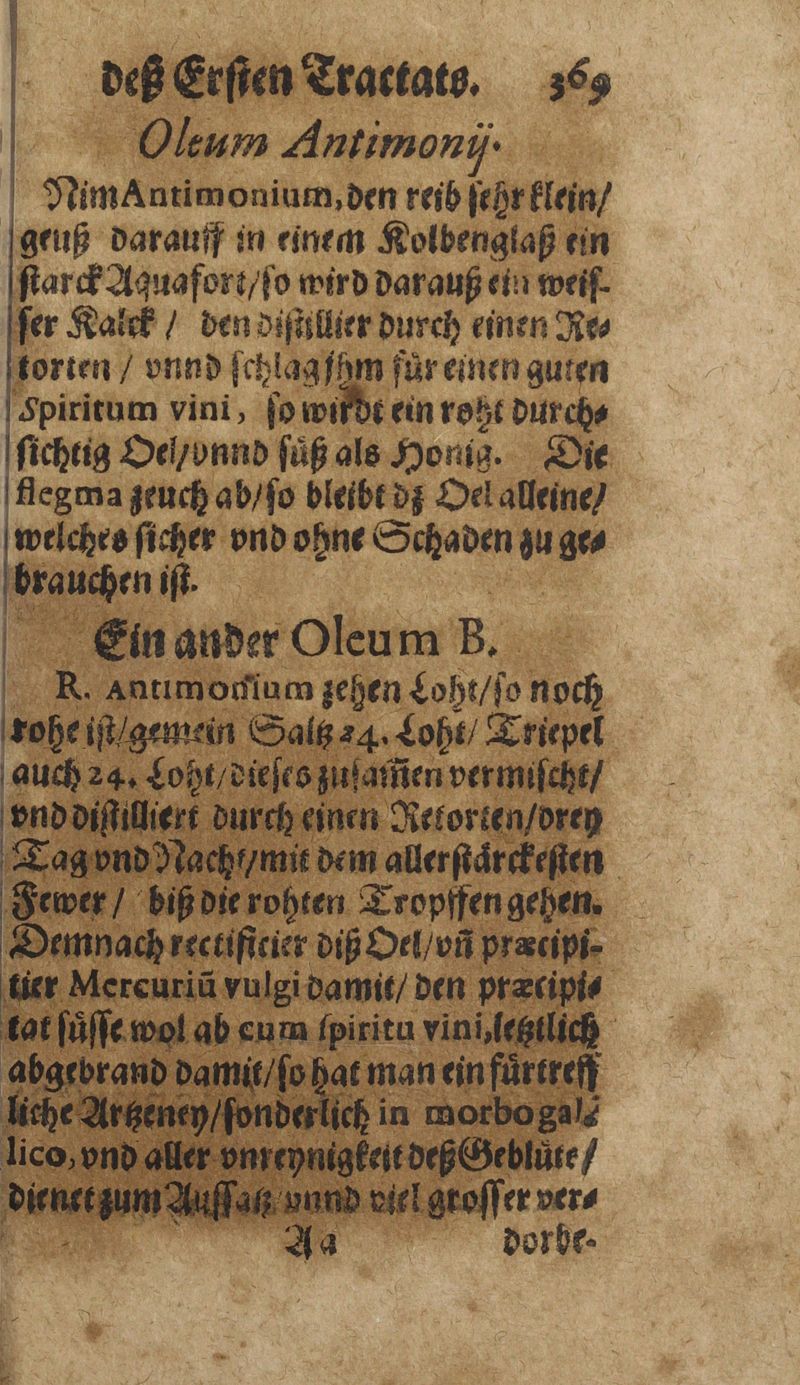 deß Ersten Tractats. 369
Oleum Antimonij.
Nim Antimonium, den reib sehr klein/
geuß darauff in einem Kolbenglaß ein
starck Aquafort/ so wird darauß ein weis-
ser Kalck / den distillier durch einen Re-
torten / vnnd schlag jhm für einen guten
Spiritum vini, so wirdt ein roht durch-
sichtig Oel/ vnnd süß als Honig. Die
flegma zeuch ab/ so bleibt dz Oel alleine/
welches sicher vnd ohne Schaden zu ge-
brauchen ist.
Ein ander Oleum B.
R. Antimonium zehen Loht/ so noch
rohe ist/ gemein Saltz 24. Loht/ Triepel
auch 24. Loht/ dieses zusam̃en vermischt/
vnd distilliert durch einen Retorten/ drey
Tag vnd Nacht/ mit dem allerstärckesten
Fewer / biß die rohten Tropffen gehen.
Demnach rectificier diß Oel/ vñ præcipi-
tier Mercuriũ vulgi damit/ den præcipi-
tat süsse wol ab cum spiritu vini, letztlich
abgebrand damit/ so hat man ein fürtreff
liche Artzeney/ sonderlich in morbo gal-
lico, vnd aller vnreynigkeit deß Geblüte/
dienet zum Aussatz/ vnnd viel grosser ver-
Aa dorbe-